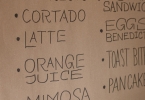 • CORTADO
• LATTE
• ORANGE
JUICE
MIMOSA
SANDWIC
• EGGS
BENEDICT
• TOAST BITE
• PANCAKE